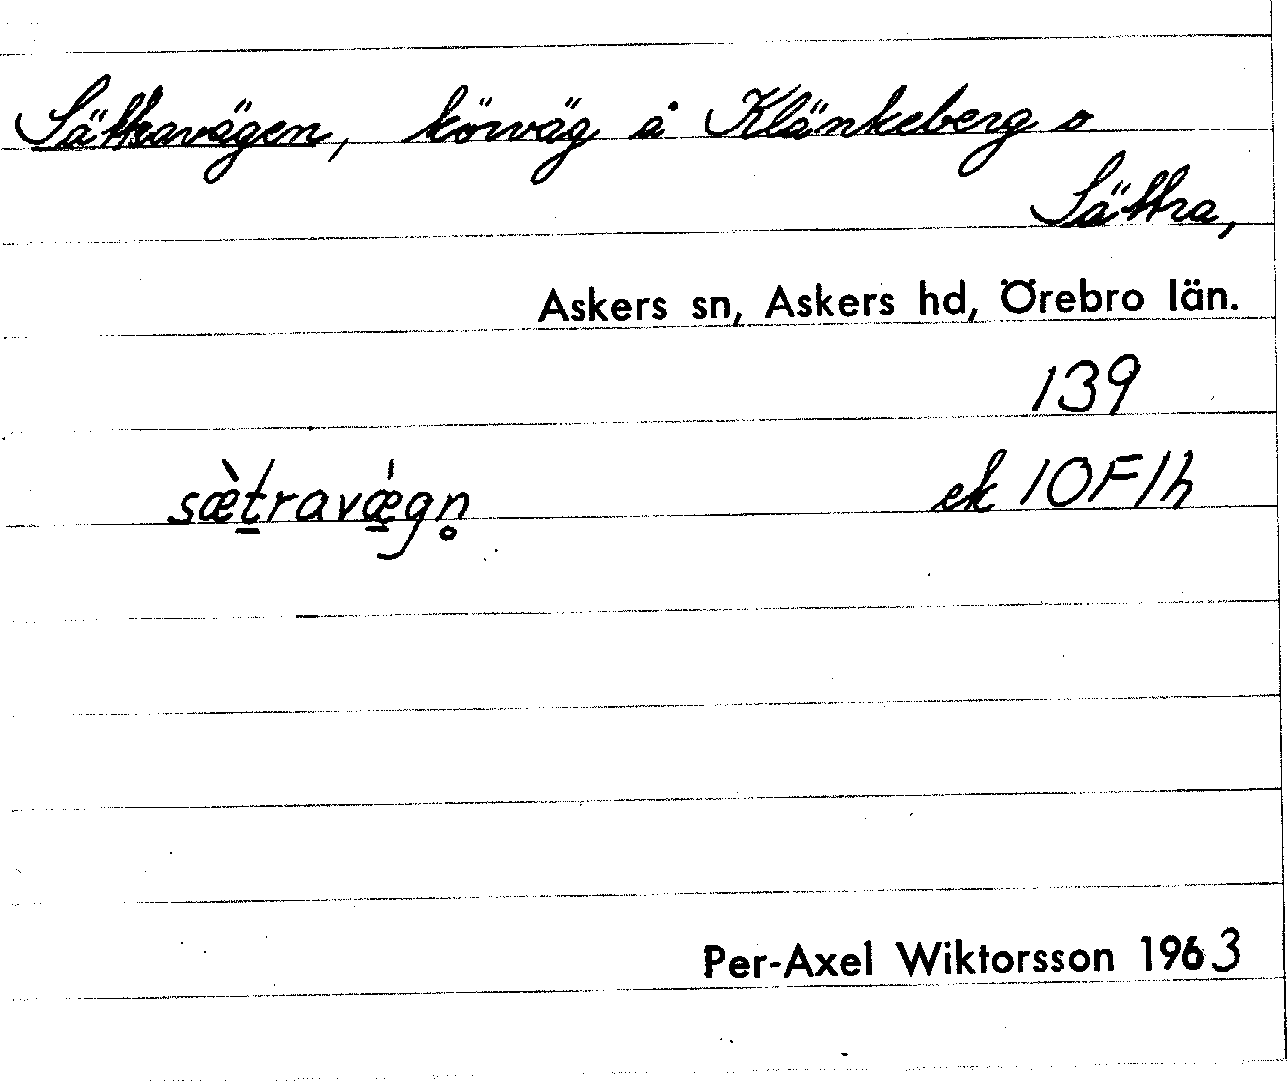 Sättravägen, körväg å Klänkeberg o
Sättra,
Askers sn, Askers hd, Örebro län.
139
sæ̀t̲ravǽ̲gn̥ ek 10F1h
Per-Axel Wiktorsson 1963